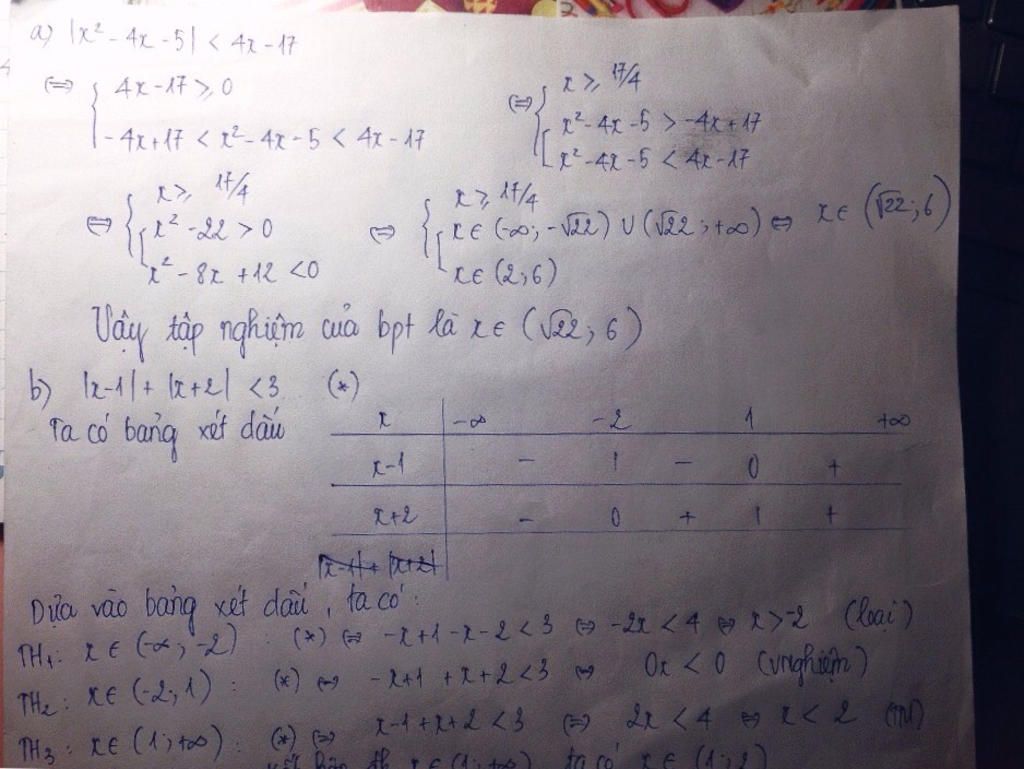 a) |x² - 4x - 5| < 4x - 17
⇔ { 4x - 17 ⩾ 0
-4x + 17 < x² - 4x - 5 < 4x - 17
⇔ { x ⩾ 17/4
[ x² - 4x - 5 > -4x + 17
x² - 4x - 5 < 4x - 17
⇔ { x ⩾ 17/4
[ x² - 22 > 0
x² - 8x + 12 < 0
⇔ { x ⩾ 17/4
[ x ∈ (-∞; -√22) ∪ (√22; +∞)
x ∈ (2; 6)
⇔ x ∈ (√22; 6)
Vậy tập nghiệm của bpt là x ∈ (√22; 6)
b) |x-1| + |x+2| < 3 (*)
Ta có bảng xét dấu
x -∞ -2 1 +∞
x-1 - | - 0 +
x+2 - 0 + | +
|x-1| + |x+2|
Dựa vào bảng xét dấu, ta có:
TH1: x ∈ (-∞; -2) : (*) ⇔ -x+1-x-2 < 3 ⇔ -2x < 4 ⇔ x > -2 (loại)
TH2: x ∈ (-2; 1) : (*) ⇔ -x+1+x+2 < 3 ⇔ 0x < 0 (vnghiệm)
TH3: x ∈ (1; +∞) : (*) ⇔ x-1+x+2 < 3 ⇔ 2x < 4 ⇔ x < 2 (TM)
x ∈ (1; +∞) ta có x ∈ (1; 2)